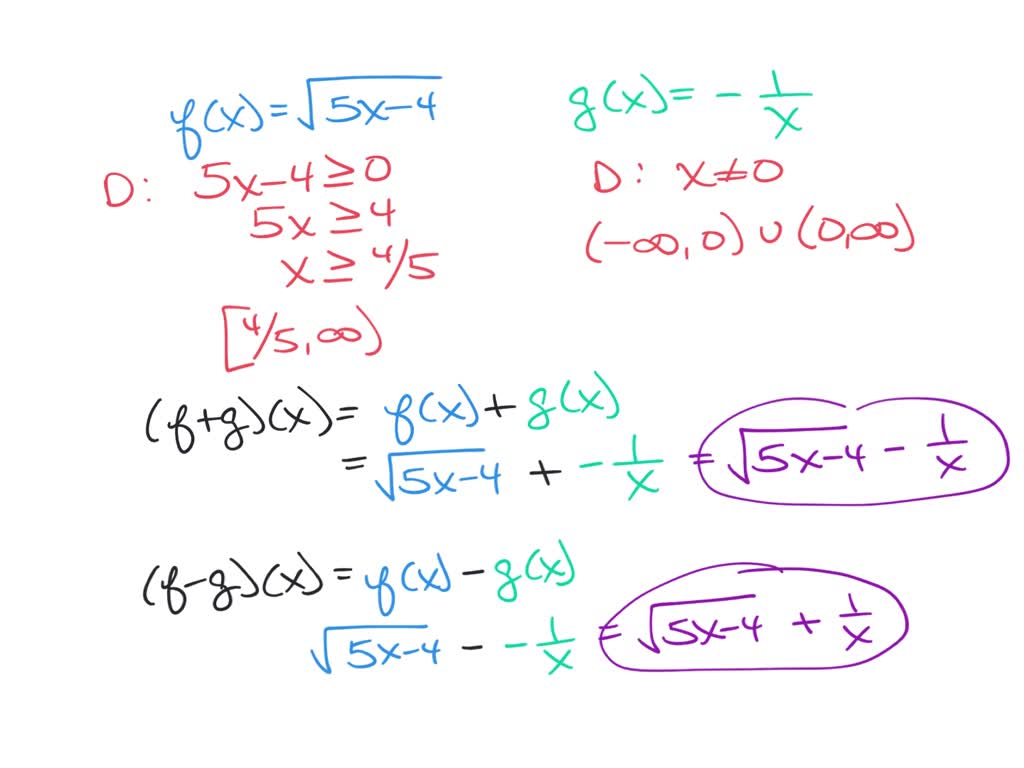 f(x) = √5x-4
D: 5x-4 ≥ 0
5x ≥ 4
x ≥ 4/5
[4/5, ∞)
g(x) = - 1/x
D: x ≠ 0
(-∞, 0) ∪ (0, ∞)
(f+g)(x) = f(x) + g(x)
= √5x-4 + - 1/x = √5x-4 - 1/x
(f-g)(x) = f(x) - g(x)
√5x-4 - - 1/x = √5x-4 + 1/x